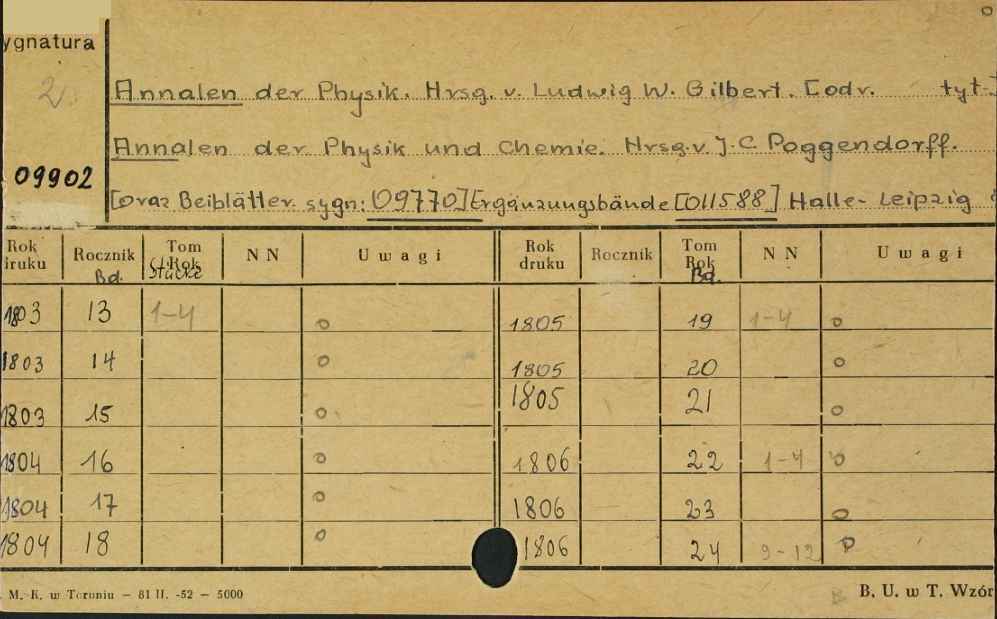 ygnatura
2
Annalen der Physik. Hrsg. v. Ludwig W. Gilbert. [odr. tyt.]
Annalen der Physik und Chemie. Hrsg. v. J. C. Poggendorff.
09902
[oraz Beiblätter. sygn: 09770] Ergänzungsbände [011588] Halle - Leipzig
Rok druku Rocznik Bd. Tom Rok Stücke NN Uwagi Rok druku Rocznik Tom Rok Bd. NN Uwagi
1803 13 1-4 o 1805 19 1-4 o
1803 14 o 1805 20 o
1803 15 o 1805 21 o
1804 16 o 1806 22 1-4 o
1804 17 o 1806 23 o
1804 18 o 1806 24 9-12 o
M. K. w Toruniu - 81 II. -52 - 5000 B. U. w T. Wzór